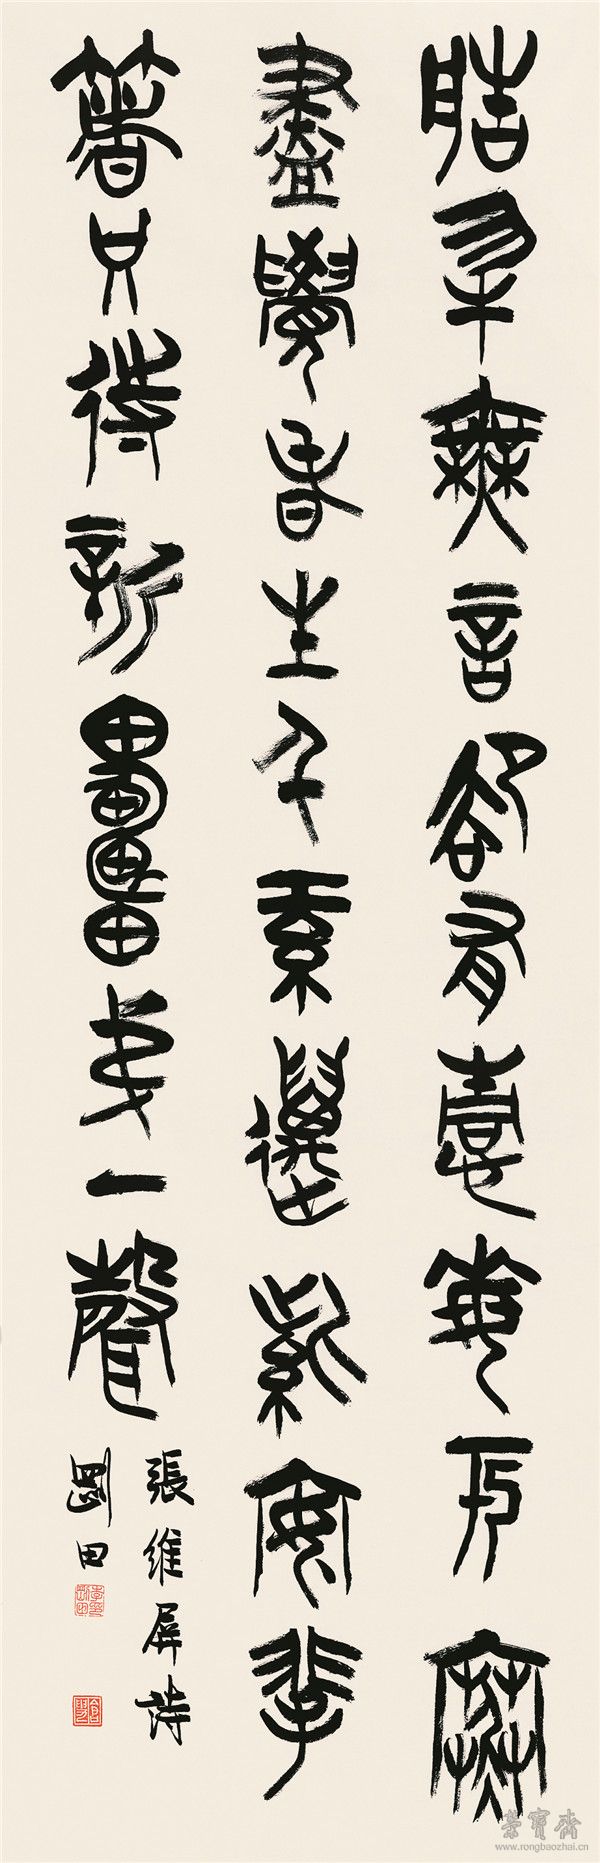 造物無言卻有情每於寒
盡覺春生千紅萬紫安排
著只待新雷第一聲
張維屏詩
剛田
榮寶齋
www.rongbaozhai.cn